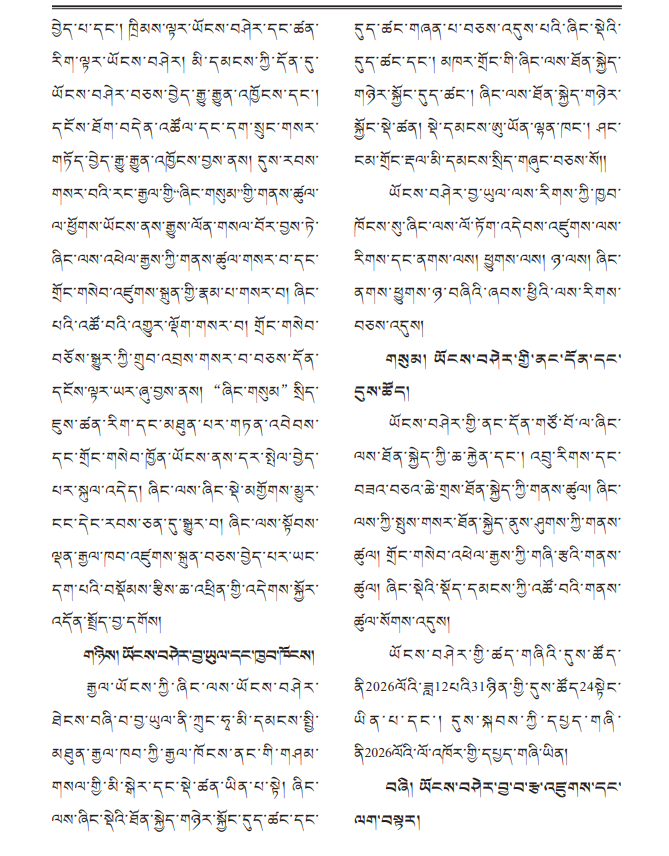 བྱེད་པ་དང་། ཁྲིམས་ལྟར་ཡོངས་བཤེར་དང་ཚན་
རིག་ལྟར་ཡོངས་བཤེར། མི་དམངས་ཀྱི་དོན་དུ་
ཡོངས་བཤེར་བཅས་བྱེད་རྒྱུ་རྒྱུན་འཁྱོངས་དང་།
དངོས་ཐོག་བདེན་འཚོལ་དང་དག་སྲུང་གསར་
གཏོད་བྱེད་རྒྱུ་རྒྱུན་འཁྱོངས་བྱས་ནས། དུས་རབས་
གསར་བའི་རང་རྒྱལ་གྱི“ཞིང་གསུམ”གྱི་གནས་ཚུལ་
ལ་ཕྱོགས་ཡོངས་ནས་རྒྱུས་ལོན་གསལ་བོར་བྱས་ཏེ་
ཞིང་ལས་འཕེལ་རྒྱས་ཀྱི་གནས་ཚུལ་གསར་བ་དང་
གྲོང་གསེབ་འཛུགས་སྐྲུན་གྱི་རྣམ་པ་གསར་བ། ཞིང་
པའི་འཚོ་བའི་འགྱུར་ལྡོག་གསར་བ། གྲོང་གསེབ་
བཅོས་སྒྱུར་ཀྱི་གྲུབ་འབྲས་གསར་བ་བཅས་དོན་
དངོས་ལྟར་ཡར་ཞུ་བྱས་ནས། “ཞིང་གསུམ”སྲིད་
ཇུས་ཚན་རིག་དང་མཐུན་པར་གཏན་འབེབས་
དང་གྲོང་གསེབ་ཁྱོན་ཡོངས་ནས་དར་སྤེལ་བྱེད་
པར་སྐུལ་འདེད། ཞིང་ལས་ཞིང་སྡེ་མགྱོགས་མྱུར་
ངང་དེང་རབས་ཅན་དུ་སྒྱུར་བ། ཞིང་ལས་སྟོབས་
ལྡན་རྒྱལ་ཁབ་འཛུགས་སྐྲུན་བཅས་བྱེད་པར་ཡང་
དག་པའི་བསྡོམས་རྩིས་ཆ་འཕྲིན་གྱི་འདེགས་སྐྱོར་
འདོན་སྤྲོད་བྱ་དགོས།
གཉིས། ཡོངས་བཤེར་བྱ་ཡུལ་དང་ཁྱབ་ཁོངས།
རྒྱལ་ཡོངས་ཀྱི་ཞིང་ལས་ཡོངས་བཤེར་
ཐེངས་བཞི་བ་བྱ་ཡུལ་ནི་ཀྲུང་ཧྭ་མི་དམངས་སྤྱི་
མཐུན་རྒྱལ་ཁབ་ཀྱི་རྒྱལ་ཁོངས་ནང་གི་གཤམ་
གསལ་གྱི་མི་སྒེར་དང་སྡེ་ཚན་ཡིན་པ་སྟེ། ཞིང་
ལས་ཞིང་སྡེའི་ཐོན་སྐྱེད་གཉེར་སྐྱོང་དུད་ཚང་དང་
དུད་ཚང་གཞན་པ་བཅས་འདུས་པའི་ཞིང་སྡེའི་
དུད་ཚང་དང་། མཁར་གྲོང་གི་ཞིང་ལས་ཐོན་སྐྱེད་
གཉེར་སྐྱོང་དུད་ཚང་། ཞིང་ལས་ཐོན་སྐྱེད་གཉེར་
སྐྱོང་སྡེ་ཚན། སྡེ་དམངས་ཨུ་ཡོན་ལྷན་ཁང་། ཤང་
ངམ་གྲོང་རྡལ་མི་དམངས་སྲིད་གཞུང་བཅས་སོ།།
ཡོངས་བཤེར་བྱ་ཡུལ་ལས་རིགས་ཀྱི་ཁྱབ་
ཁོངས་སུ་ཞིང་ལས་ལོ་ཏོག་འདེབས་འཛུགས་ལས་
རིགས་དང་ནགས་ལས། ཕྱུགས་ལས། ཉ་ལས། ཞིང་
ནགས་ཕྱུགས་ཉ་བཞིའི་ཞབས་ཕྱིའི་ལས་རིགས་
བཅས་འདུས།
གསུམ། ཡོངས་བཤེར་གྱི་ནང་དོན་དང་
དུས་ཚོད།
ཡོངས་བཤེར་གྱི་ནང་དོན་གཙོ་བོ་ལ་ཞིང་
ལས་ཐོན་སྐྱེད་ཀྱི་ཆ་རྐྱེན་དང་། འབྲུ་རིགས་དང་
བཟའ་བཅའ་ཆེ་གྲས་ཐོན་སྐྱེད་ཀྱི་གནས་ཚུལ། ཞིང་
ལས་ཀྱི་སྤུས་གསར་ཐོན་སྐྱེད་ནུས་ཤུགས་ཀྱི་གནས་
ཚུལ། གྲོང་གསེབ་འཕེལ་རྒྱས་ཀྱི་གཞི་རྩའི་གནས་
ཚུལ། ཞིང་སྡེའི་སྡོད་དམངས་ཀྱི་འཚོ་བའི་གནས་
ཚུལ་སོགས་འདུས།
ཡོངས་བཤེར་གྱི་ཚད་གཞིའི་དུས་ཚོད་
ནི2026ལོའི་ཟླ12པའི31ཉིན་གྱི་དུས་ཚོད24སྟེང་
ཡིན་པ་དང་། དུས་སྐབས་ཀྱི་དཔྱད་གཞི་
ནི2026ལོའི་ལོ་འཁོར་གྱི་དཔྱད་གཞི་ཡིན།
བཞི། ཡོངས་བཤེར་བྱ་བ་རྩ་འཛུགས་དང་
ལག་བསྟར།